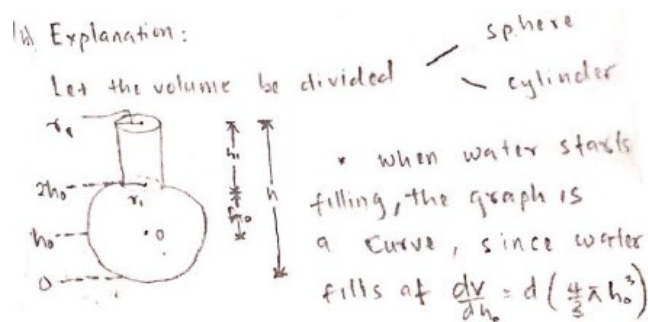 (b) Explanation:
Let the volume be divided
sphere
cylinder
r₁
2h₀
r₁
h₀
0
O
h₁
h₀
h
* when water starts
filling, the graph is
a curve, since water
fills at dv/dh₀ = d(4/3 π h₀³)